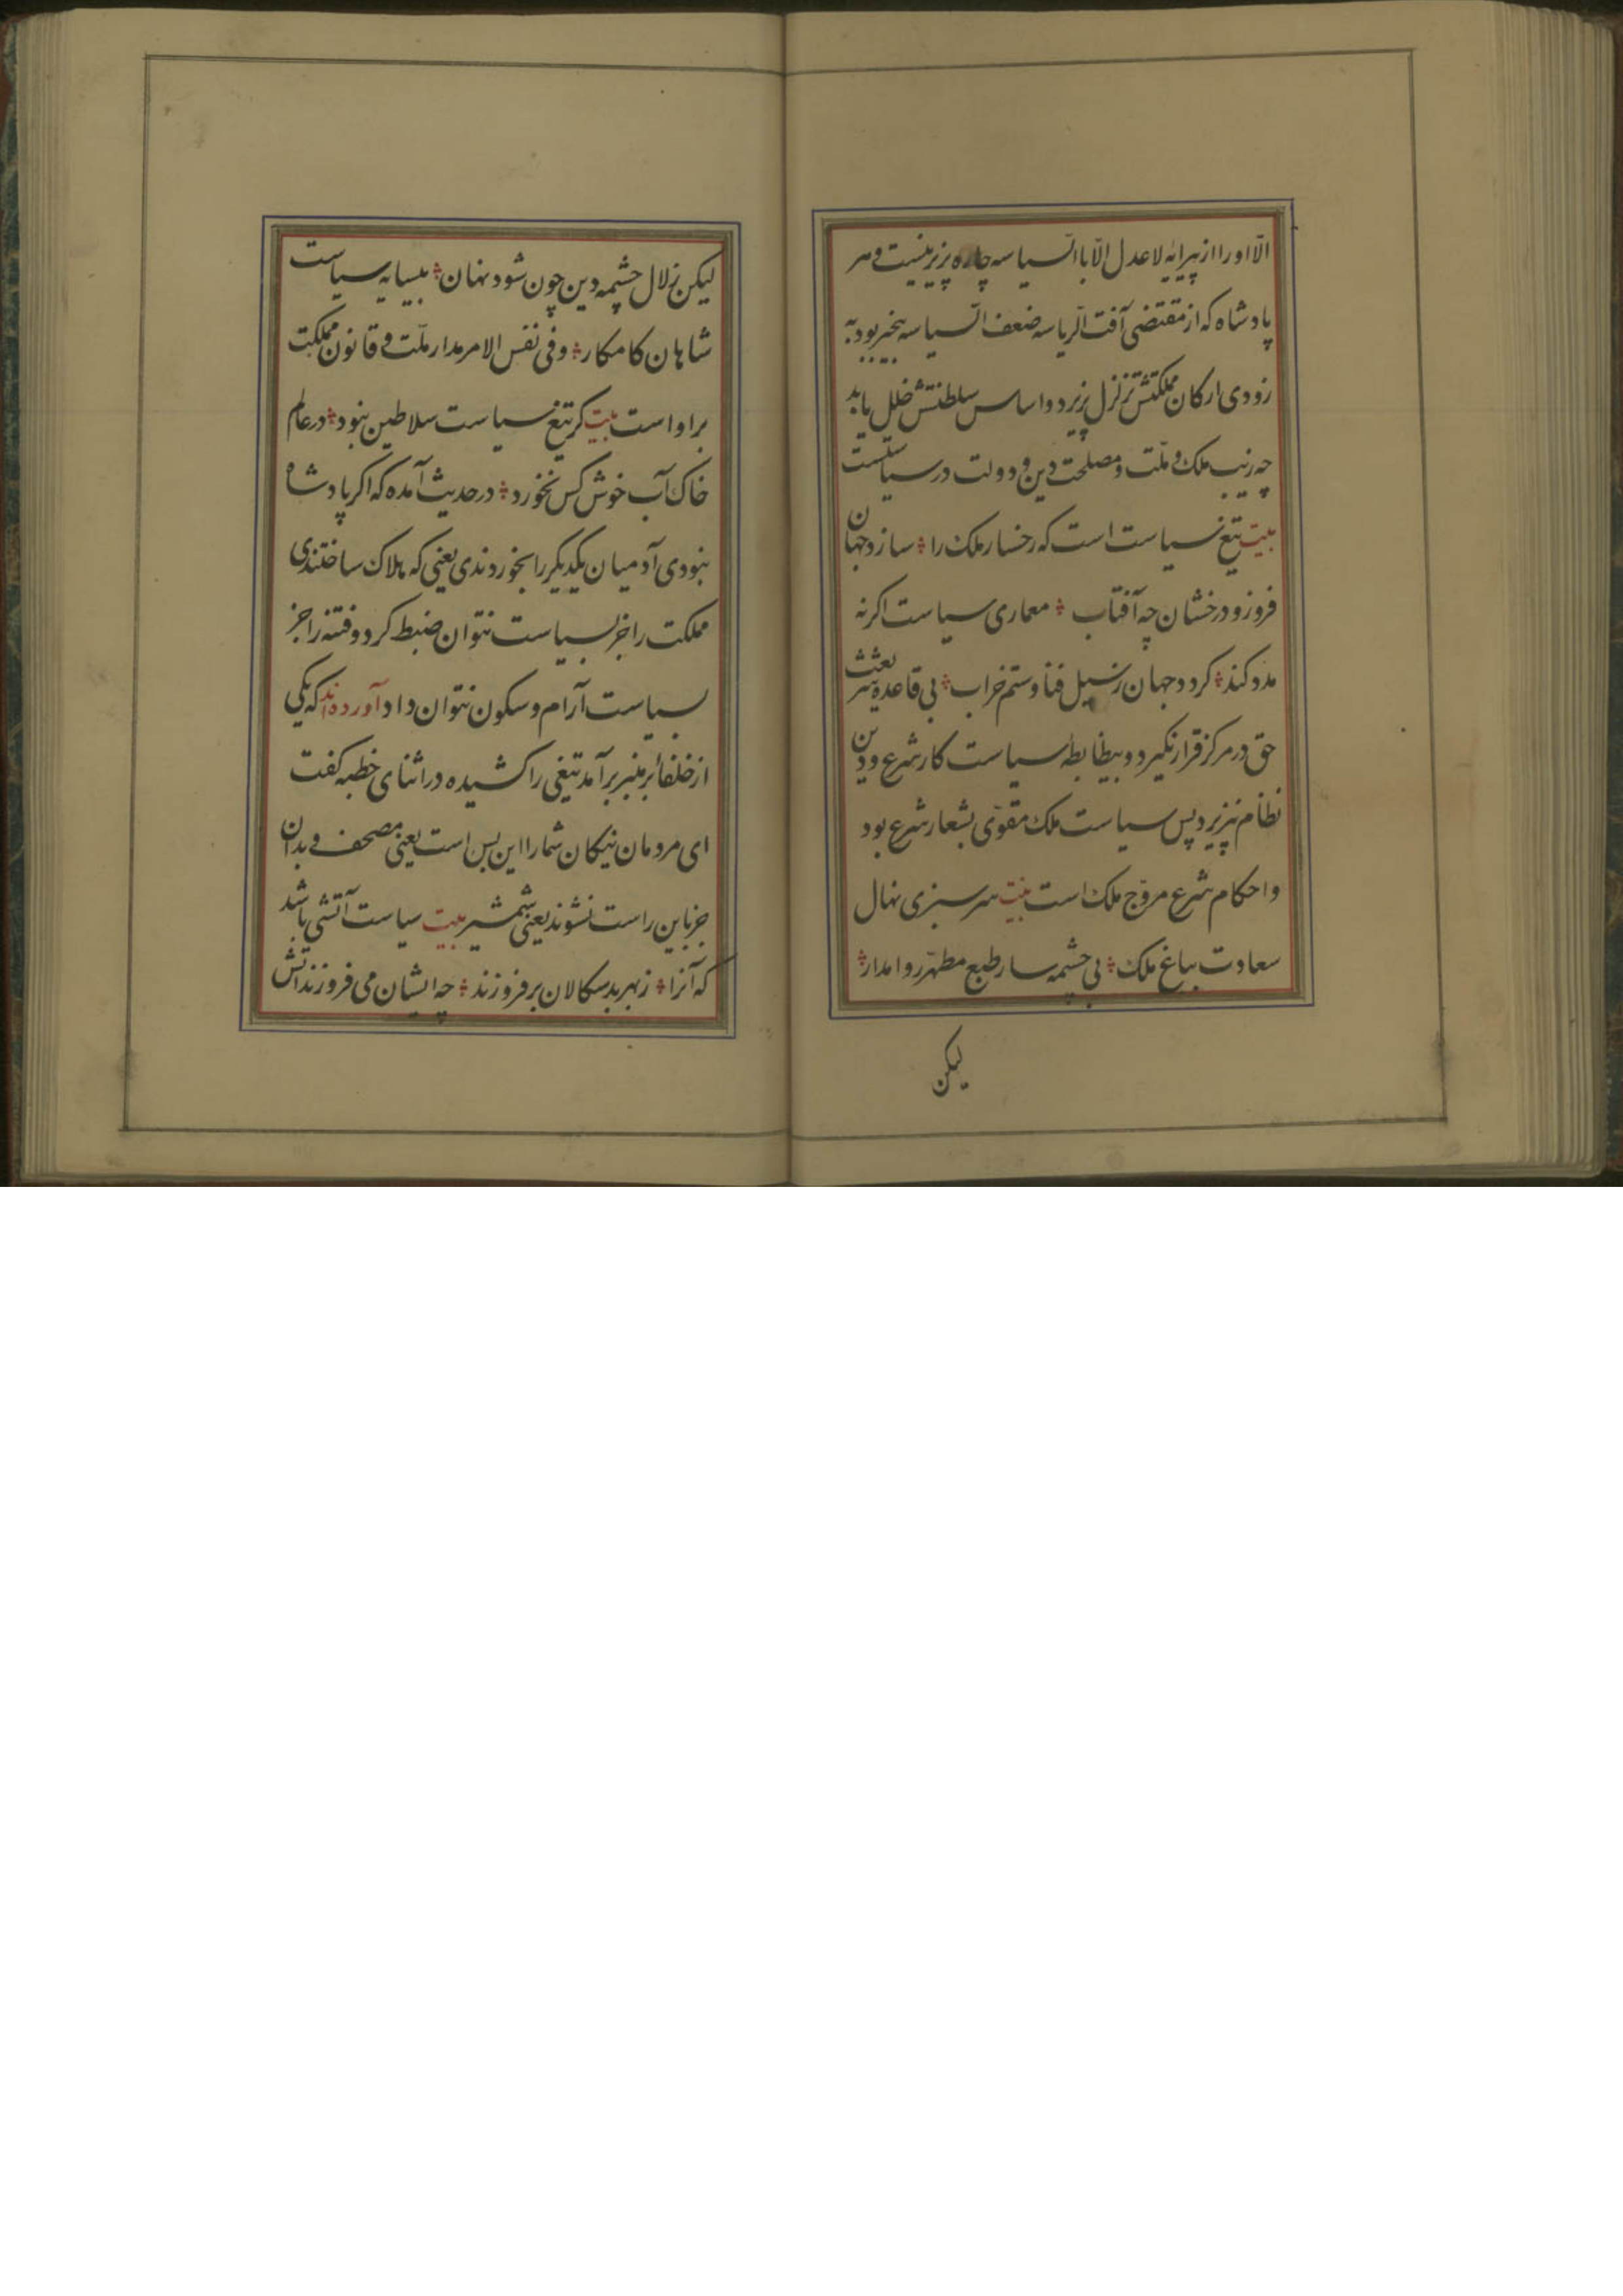 الّا او را از پیرایه لا عدل الّا باالسیاسه چاره پزیر نیست و هر
پادشاه که از مقتضی آفت الریاسه ضعف السیاسه بیخبر بود به
زودی ارکان مملکتش تزلزل پزیرد و اساس سلطنتش خلل یابد
چه زیب ملک و ملّت و مصلحت دین و دولت در سیاستست
بیت تیغ سیاست است که رخسار ملک را ؞ سازد جهان
فروز و درخشان چه آفتاب ؞ معماری سیاست اگر نه
مدد کند ؞ کردد جهان ز سیل فنا و ستم خراب ؞ بی قاعده
حق در مرکز قرار نگیرد و بیظابطه سیاست کار شرع و دین
نظام نپزیرد پس سیاست ملک مقوّی بشعار شرع بود
و احکام شرع مروّج ملک است بیت سر سبزی نهال
سعادت بباغ ملک ؞ بی چشمه سار طبع مطهّر روا مدار ؞
لیکن
لیکن زلال چشمه دین چون شود نهان ؞ سیاست
شاهان کامکار ؞ و فی نفس الامر مدار ملّت و قانون مملکت
بر او است بیت کر تیغ سیاست سلاطین نبود ؞ در عالم
خاک آب خوش کس نخورد ؞ در حدیث آمده که اکر پادشاه
نبودی آدمیان یکدیکر را بخوردندی یعنی که هلاک ساختندی
مملکت را جز بسیاست نتوان ضبط کرد و فتنه را جز
بسیاست آرام و سکون نتوان داد آورده‌اند که یکی
از خلفا بر منبر بر آمد تیغی را کشیده در اثنای خطبه کفت
ای مردمان نیکان شما را این بس است یعنی مصحف و بدان
جز باین راست نشوند یعنی شمشیر بیت سیاست آتشی باشد
که آنرا ؞ ز بهر بد سکالان بر فروزند ؞ چه ایشان می فروزند آتش